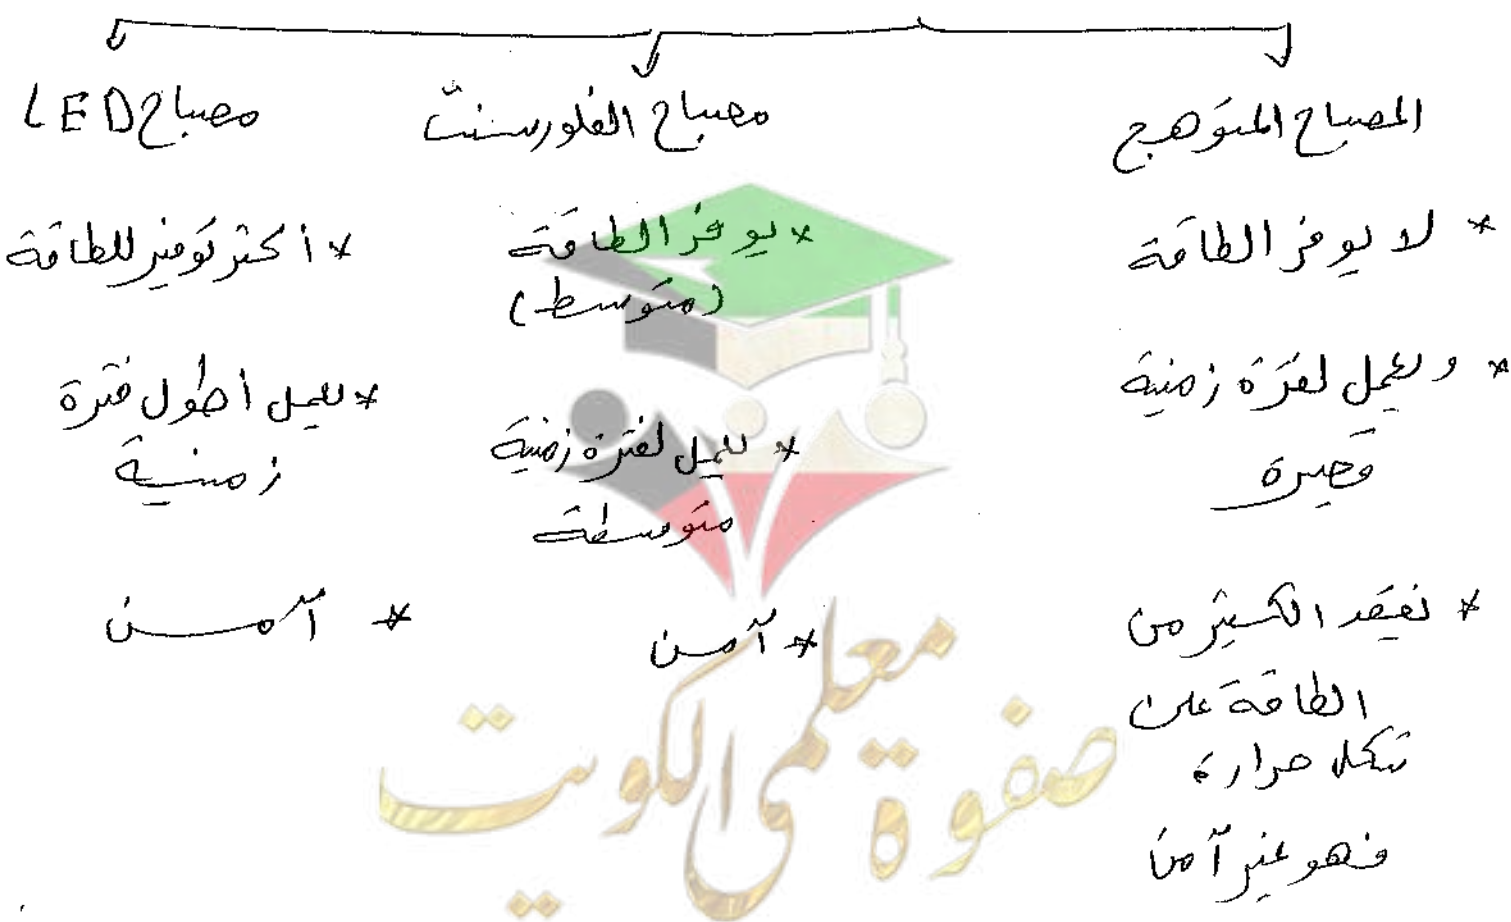 المصباح المتوهج
* لا يوفر الطاقة
* ويعمل لفترة زمنية
قصيرة
* يفقد الكثير من
الطاقة على
شكل حرارة
فهو غير آمن
مصباح الفلورسنت
* يوفر الطاقة
(متوسط)
* يعمل لفترة زمنية
متوسطة
* آمن
مصباح LED
* أكثر توفير للطاقة
* يعمل أطول فترة
زمنية
* آمن
صفوة معلمى الكويت